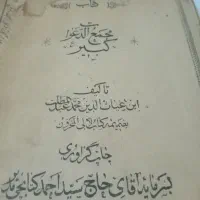 کتاب
مجمع الدعوات
کبیر
تألیف
ابن غیاث الدین محمد
بضمیمه کتاب
چاپ گراوری
بسرمایه آقای حاج سید احمد کتابچی